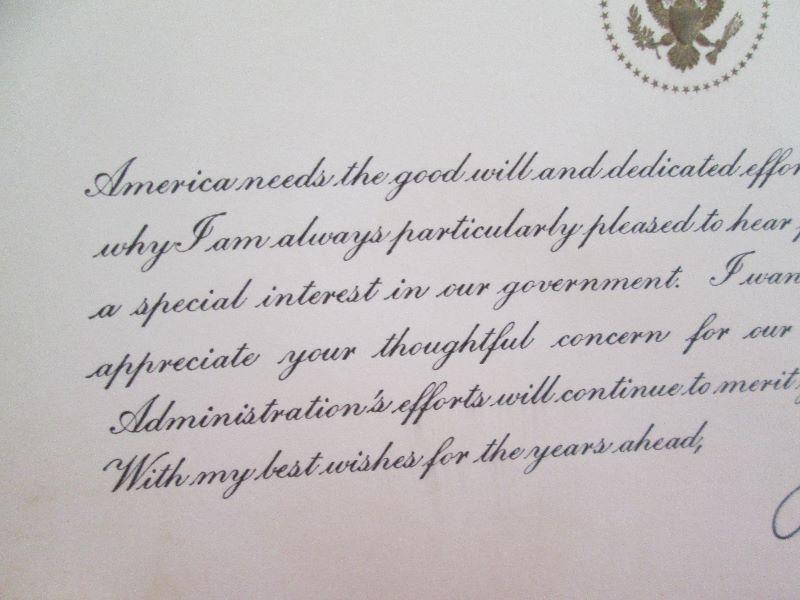 America needs the good will and dedicated
why I am always particularly pleased to hear
a special interest in our government. I
appreciate your thoughtful concern for our
Administration's efforts will continue to merit
With my best wishes for the years ahead,